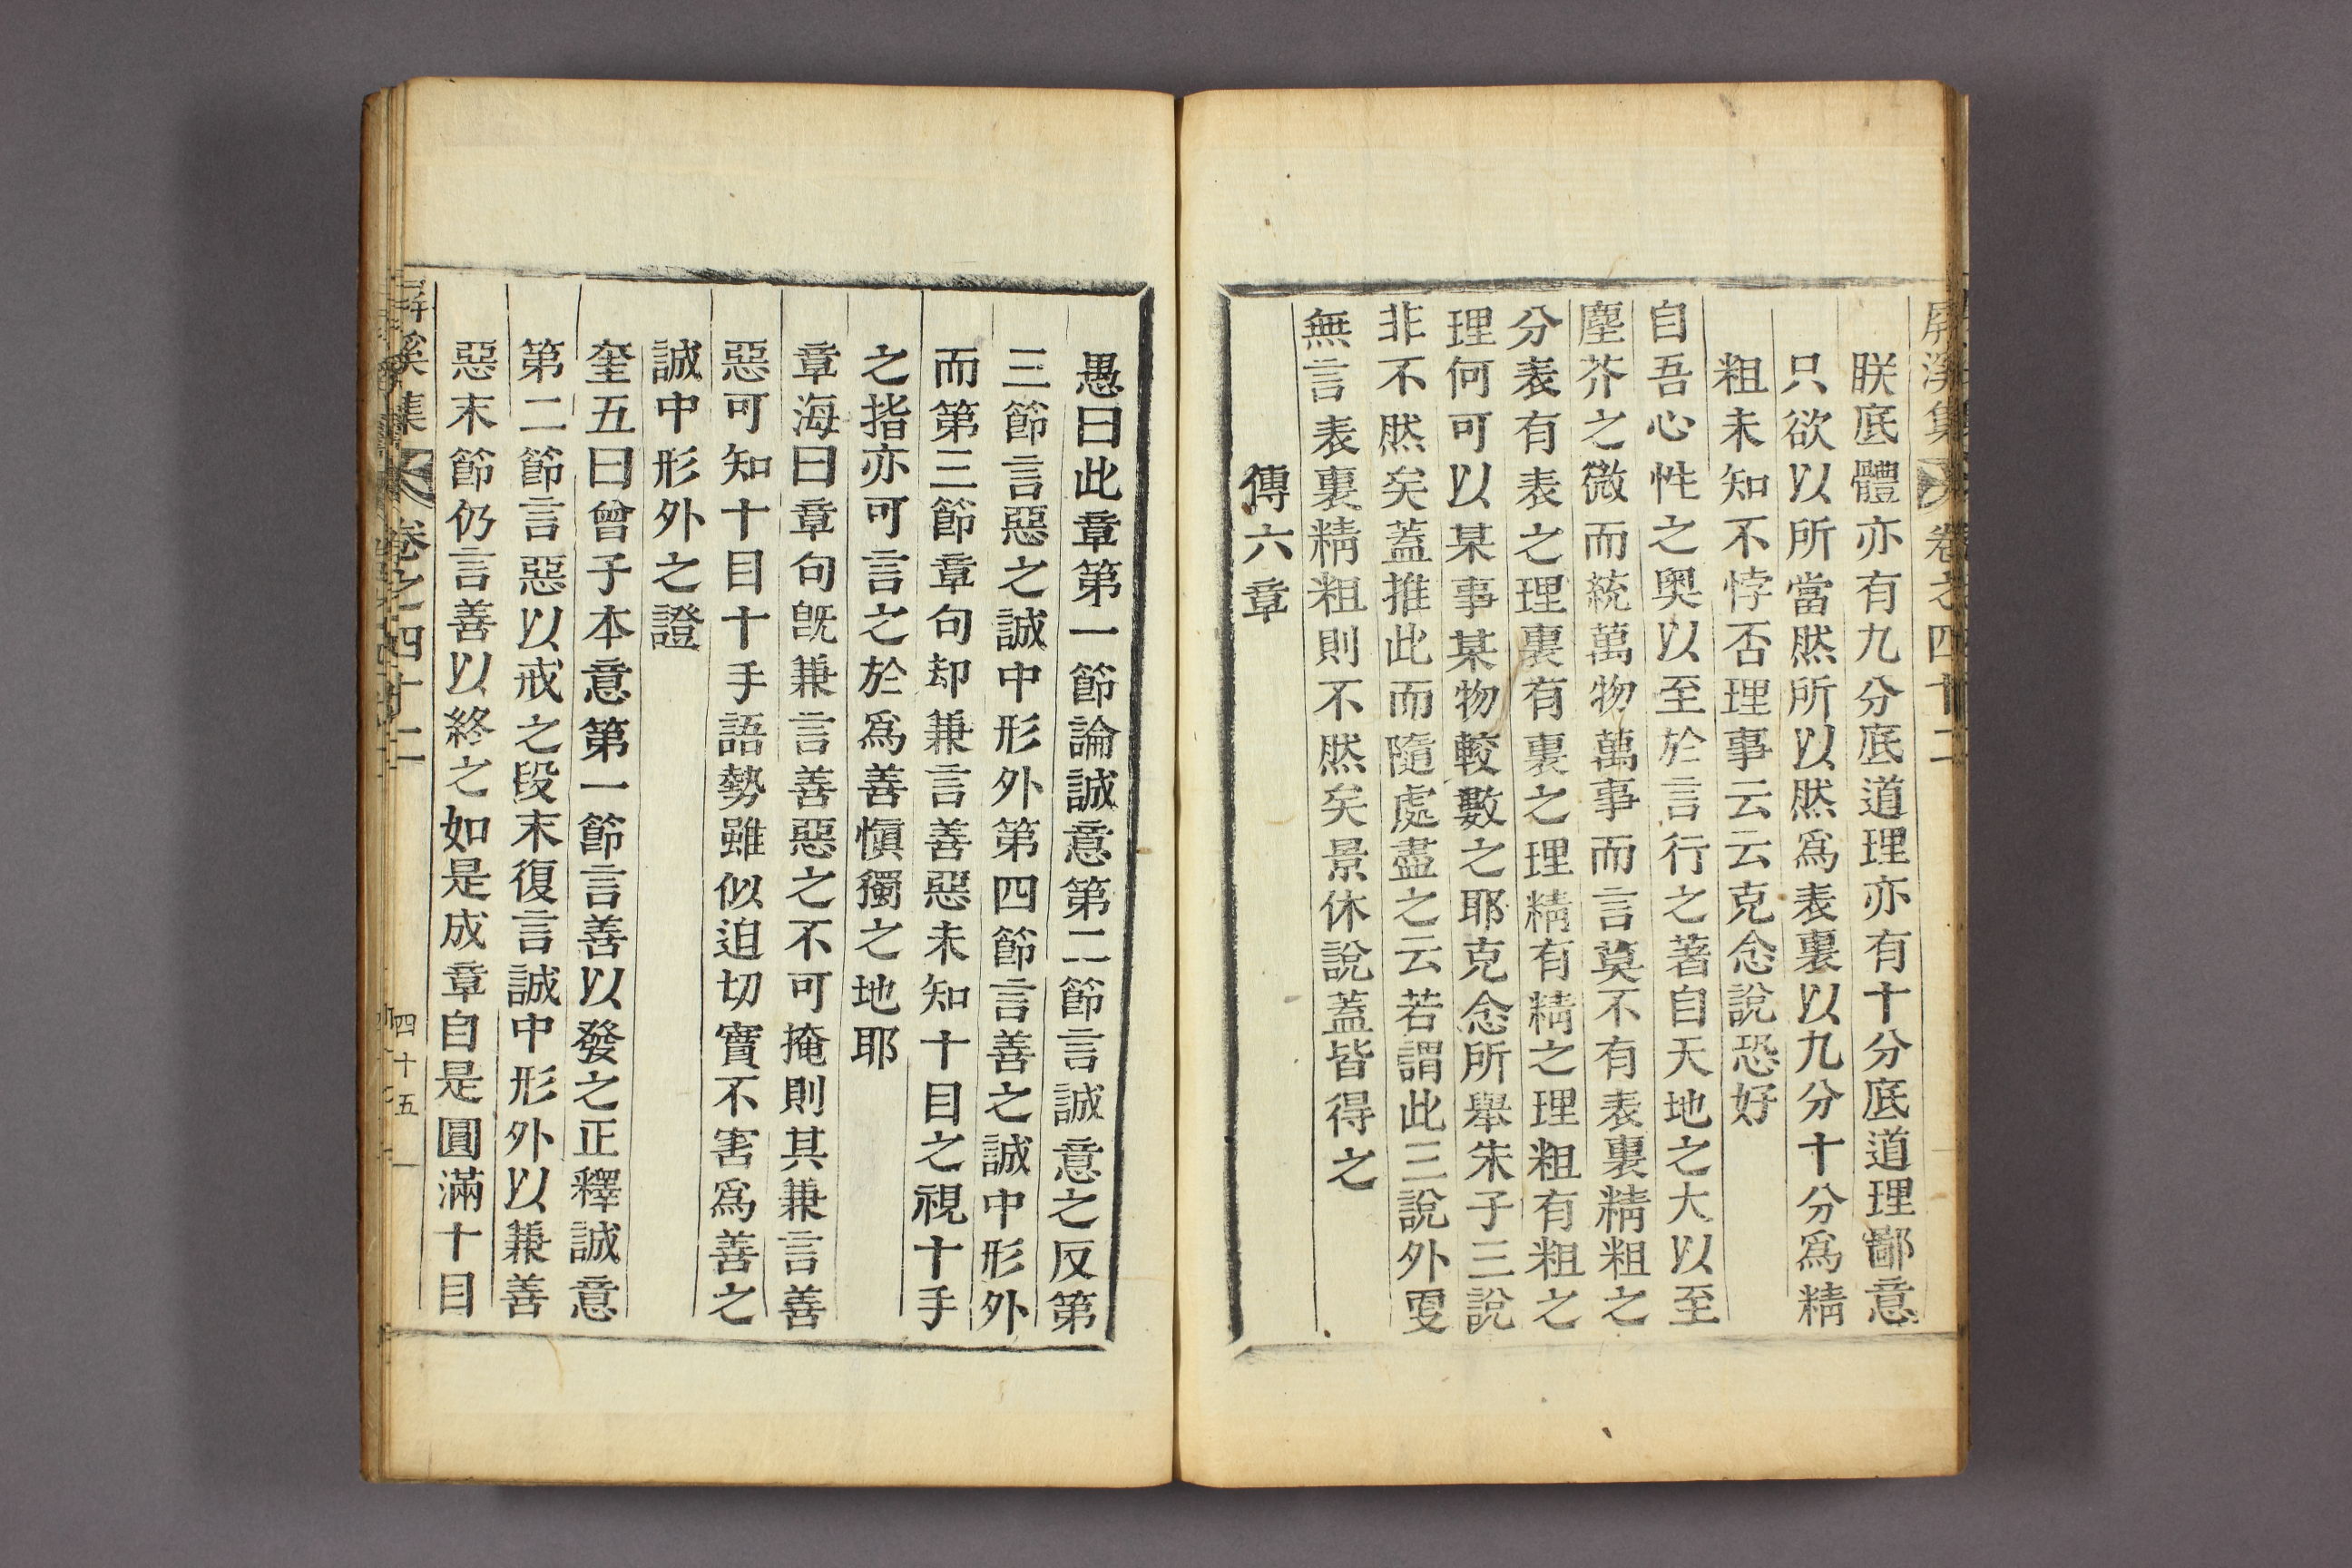 屏溪集 卷之四十二
朕底體亦有九分底道理亦有十分底道理鄙意
只欲以所當然所以然爲表裏以九分十分爲精
粗未知不悖否理事云云克念說恐好
自吾心性之奧以至於言行之著自天地之大以至
塵芥之微而統萬物萬事而言莫不有表裏精粗之
分表有表之理裏有裏之理精有精之理粗有粗之
理何可以某事某物較數之耶克念所舉朱子三說
非不然矣蓋推此而隨處盡之云若謂此三說外更
無言表裏精粗則不然矣景休說蓋皆得之
傳六章
愚曰此章第一節論誠意第二節言誠意之反第
三節言惡之誠中形外第四節言善之誠中形外
而第三節章句却兼言善惡未知十目之視十手
之指亦可言之於爲善愼獨之地耶
章海曰章句旣兼言善惡之不可掩則其兼言善
惡可知十目十手語勢雖似迫切實不害爲善之
誠中形外之證
奎五曰曾子本意第一節言善以發之正釋誠意
第二節言惡以戒之段末復言誠中形外以兼善
惡末節仍言善以終之如是成章自是圓滿十目
屏溪集 卷之四十二 四十五